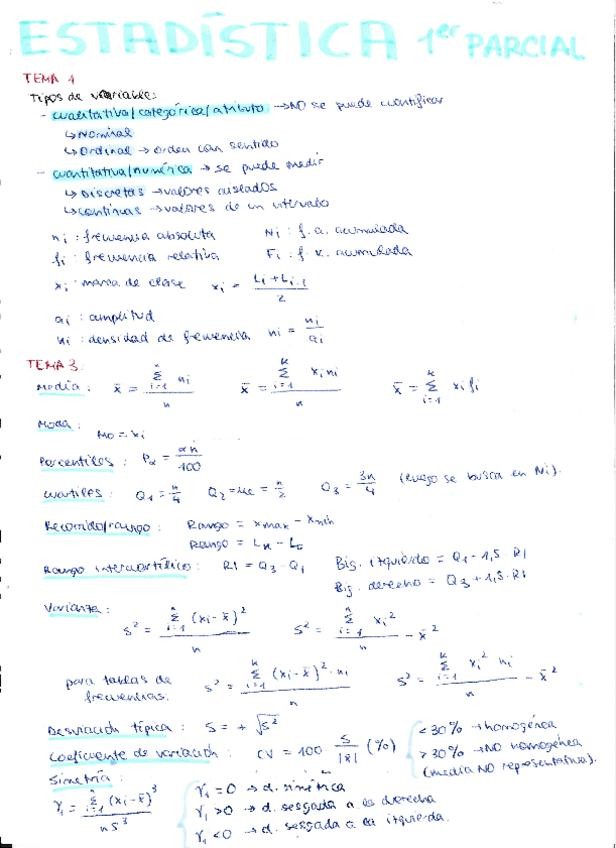 ESTADÍSTICA 1er PARCIAL
TEMA 1
Tipos de variable:
- cualitativa/categórica/atributo → NO se puede cuantificar
↳ Nominal
↳ Ordinal → orden con sentido
- cuantitativa/numérica → se puede medir
↳ Discretas → valores aislados
↳ continuas → valores de un intervalo
ni : frecuencia absoluta Ni : f. a. acumulada
fi : frecuencia relativa Fi : f. r. acumulada
xi : marca de clase xi = (Li + Li-1)/2
ai : amplitud
hi : densidad de frecuencia hi = ni/ai
TEMA 3
Media : x̄ = Σ(i=1, n) ni / n x̄ = Σ(i=1, k) xi ni / n x̄ = Σ(i=1, k) xi fi
Moda :
Mo = xi
Percentiles : Pα = αn/100
cuartiles : Q1 = n/4 Q2 = Me = n/2 Q3 = 3n/4 (luego se busca en Ni).
Recorrido/rango : Rango = xmax - xmin
Rango = Lk - L0
Rango intercuartílico : RI = Q3 - Q1 Big. izquierdo = Q1 - 1,5 · RI
Big. derecho = Q3 + 1,5 · RI
Varianza :
S² = Σ(i=1, n) (xi - x̄)² / n S² = Σ(i=1, k) xi² / n - x̄²
para tablas de frecuencias. S² = Σ(i=1, k) (xi - x̄)² · ni / n S² = Σ(i=1, k) xi² ni / n - x̄²
Desviación típica : S = + √S²
Coeficiente de variación : CV = 100 S/|x̄| (%)
< 30% → homogénea
> 30% → NO homogénea
(media NO representativa).
Simetría :
γ1 = Σ(i=1, n) (xi - x̄)³ / nS³
γ1 = 0 → d. simétrica
γ1 > 0 → d. sesgada a la derecha
γ1 < 0 → d. sesgada a la izquierda.